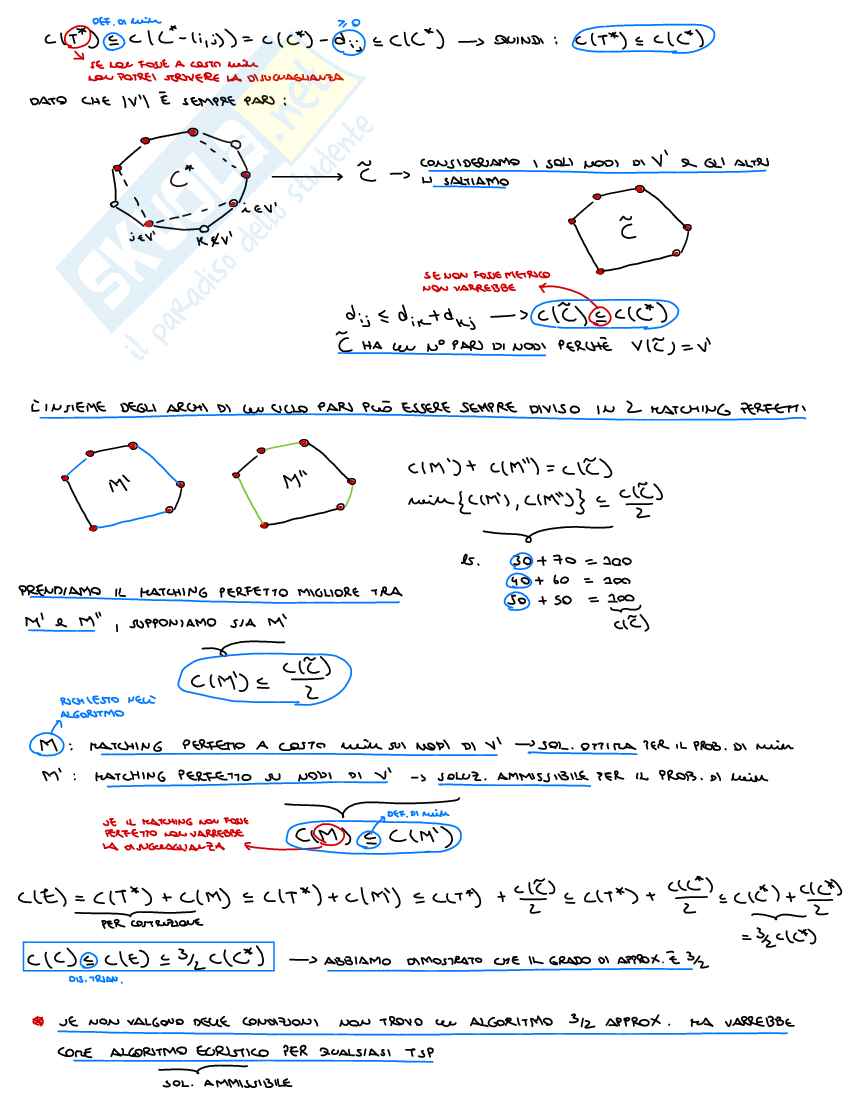 DEF. DI min
≥ 0
C(T*) ≤ C(C*-(i,j)) = C(C*) - dij ≤ C(C*) → QUINDI : C(T*) ≤ C(C*)
SE NON FOSSE A COSTO min
NON POTREI SCRIVERE LA DISUGUAGLIANZA
DATO CHE |V'| È SEMPRE PARI :
SKUOLA.net
il paradiso dello studente
C*
i∈V'
j∈V'
K∉V'
→ C̃ → CONSIDERIAMO I SOLI NODI DI V' E GLI ALTRI
LI SALTIAMO
C̃
SE NON FOSSE METRICO
NON VARREBBE
dij ≤ dik + dkj → C(C̃) ≤ C(C*)
C̃ HA UN N° PARI DI NODI PERCHÈ V(C̃) = V'
L'INSIEME DEGLI ARCHI DI UN CICLO PARI PUÒ ESSERE SEMPRE DIVISO IN 2 MATCHING PERFETTI
M'
M"
C(M') + C(M") = C(C̃)
min{C(M'), C(M")} ≤ C(C̃)/2
es. 30 + 70 = 100
40 + 60 = 100
50 + 50 = 100
C(C̃)
PRENDIAMO IL MATCHING PERFETTO MIGLIORE TRA
M' E M" , SUPPONIAMO SIA M'
C(M') ≤ C(C̃)/2
RICHIESTO NELL'
ALGORITMO
M : MATCHING PERFETTO A COSTO min SUI NODI DI V' → SOL. OTTIMA PER IL PROB. DI min
M' : MATCHING PERFETTO SU NODI DI V' → SOLUZ. AMMISSIBILE PER IL PROB. DI min
SE IL MATCHING NON FOSSE
PERFETTO NON VARREBBE
LA DISUGUAGLIANZA
DEF. DI min
C(M) ≤ C(M')
C(E) = C(T*) + C(M) ≤ C(T*) + C(M') ≤ C(T*) + C(C̃)/2 ≤ C(T*) + C(C*)/2 ≤ C(C*) + C(C*)/2
PER COSTRUZIONE
= 3/2 C(C*)
C(C) ≤ C(E) ≤ 3/2 C(C*) → ABBIAMO DIMOSTRATO CHE IL GRADO DI APPROX. È 3/2
DIS. TRIAN.
* SE NON VALGONO DELLE CONDIZIONI NON TROVO UN ALGORITMO 3/2 APPROX. MA VARREBBE
COME ALGORITMO EURISTICO PER QUALSIASI TSP
SOL. AMMISSIBILE